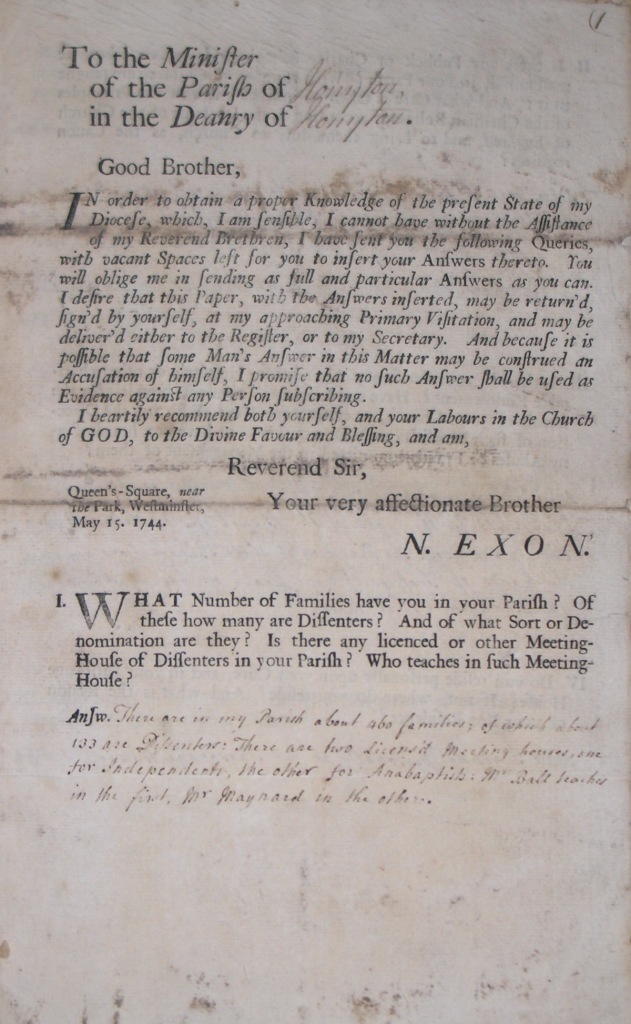 (1
To the Miniſter
of the Pariſh of Honyton,
in the Deanry of Honyton.
Good Brother,
IN order to obtain a proper Knowledge of the preſent State of my
Dioceſe, which, I am ſenſible, I cannot have without the Aſſiſtance
of my Reverend Brethren, I have ſent you the following Queries,
with vacant Spaces left for you to inſert your Anſwers thereto. You
will oblige me in ſending as full and particular Anſwers as you can.
I deſire that this Paper, with the Anſwers inſerted, may be return'd,
ſign'd by yourſelf, at my approaching Primary Viſitation, and may be
deliver'd either to the Regiſter, or to my Secretary. And becauſe it is
poſſible that ſome Man's Anſwer in this Matter may be conſtrued an
Accuſation of himſelf, I promiſe that no ſuch Anſwer ſhall be uſed as
Evidence againſt any Perſon ſubſcribing.
I heartily recommend both yourſelf, and your Labours in the Church
of GOD, to the Divine Favour and Bleſſing, and am,
Reverend Sir,
Queen's-Square, near
the Park, Weſtminſter,
May 15. 1744.
Your very affectionate Brother
N. EXON.
I. WHAT Number of Families have you in your Pariſh? Of
theſe how many are Diſſenters? And of what Sort or De-
nomination are they? Is there any licenced or other Meeting-
Houſe of Diſſenters in your Pariſh? Who teaches in ſuch Meeting-
Houſe?
Anſw. There are in my Parish about 460 families; of which about
133 are Dissenters: There are two Licens'd Meeting houses, one
for Independents, the other for Anabaptists: Mr Ball teaches
in the first, Mr Maynard in the other.